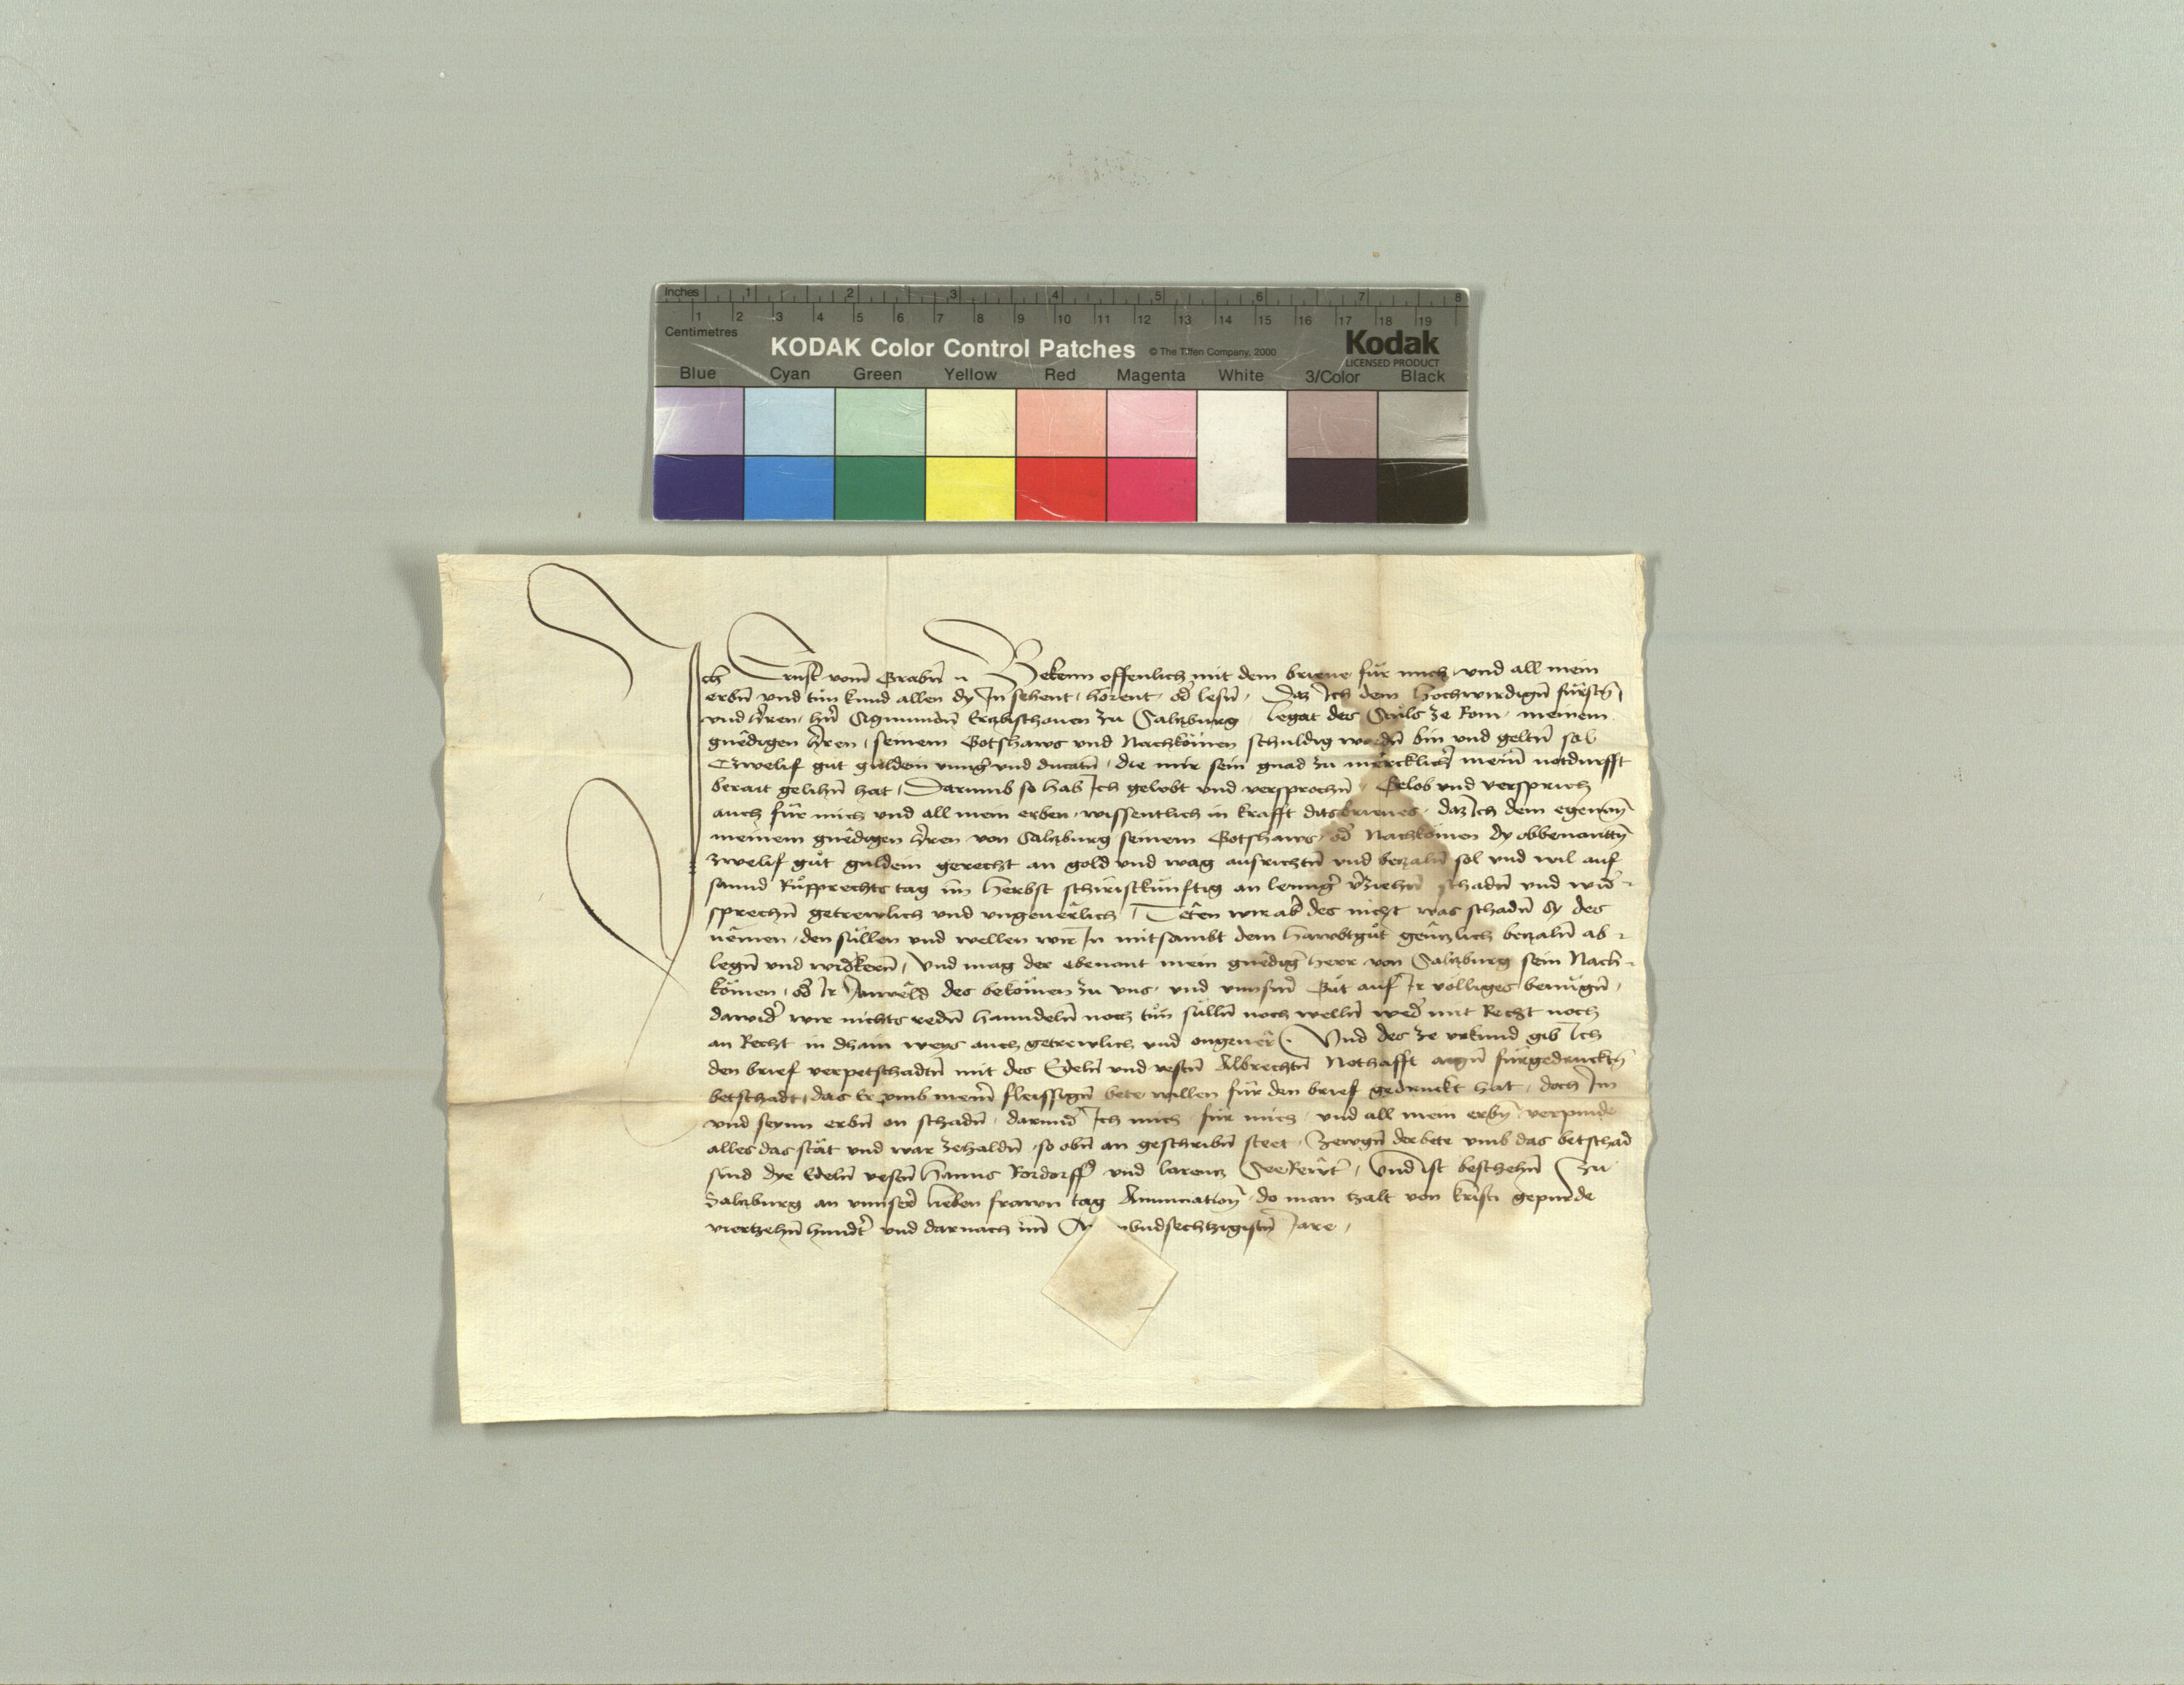 Inches 1 2 3 4 5 6 7 8
1 2 3 4 5 6 7 8 9 10 11 12 13 14 15 16 17 18 19
Centimetres
KODAK Color Control Patches © The Tiffen Company, 2000 Kodak
LICENSED PRODUCT
Blue Cyan Green Yellow Red Magenta White 3/Color Black
Ich Ernst vom Grabn̄ Bekenn offenlich mit dem brieue für mich und all mein
erbn̄ vnd tun kund allen dy In sehent horent od̄ lesn̄ Daz Ich dem Hochwirdign̄ fürstn̄
vnd hr̄ren hn̄ Sigmundn̄ Erzbischouen zu Salzburg legat des Stuls ze Rom meinem
gnêdigen hr̄ren seinem Gotshaws vnd Nachkömen schuldig wordn̄ bin vnd geltn̄ sol
Czwelif gut guldein vnnḡ vnd ducatn̄ die mir sein gnad zu mercklicher meinr̄ notdurfft
berait gelihn̄ hat Darumb so hab Ich gelobt vnd versprochn̄ Gelob vnd versprich
auch für mich vnd all mein erben wissentlich in krafft ditsbrieues daz Ich dem egenan̄
meinem gnêdigen hr̄ren von Salzburg seinem Gotshaws od̄ Nachkömen dy obbenantn̄
zwelif gut guldein gerecht an gold vnd wag ausrichtn̄ vnd bezaln̄ sol vnd wil auf
sannd Rupprechts tag im Herbst schiristkünftig an lennḡ v̄ziehn̄ schadn̄ vnd wid̄
sprechn̄ getrewlich vnd vngeuêrlich Têten wir ab̄ des nicht was schadn̄ Sy des
nêmen den süllen vnd wellen wir In mitsambt dem Hawbtgut gentzlich bezaln̄ ab
legn̄ vnd wid̄kern̄ Vnd mag der ebenant mein gnêdiḡ herr von Salzburg sein Nach
kömen od̄ Ir Anwêld des bekömen zu vns vnd vnnsern̄ Gut auf Ir völliges benügn̄
dawid̄ wir nichts redn̄ hanndeln̄ noch tun sülln̄ noch welln̄ wed̄ mit Recht noch
an Recht in dhain weys auch getrewlich vnd ongeuêr Vnd des ze vrkund gib Ich
den brief verpetschadtn̄ mit des Edeln̄ vnd vestn̄ Albrechtn̄ Nothafft aign̄ fürgedrucktn̄
betschadt das Er vmb meinr̄ fleissign̄ bete willen für den brief gedruckt hat doch Im
vnd seynn erbn̄ on schadn̄ darund̄ Ich mich für mich vnd all mein erbn̄ verpinde
alles das stät vnd war zehaldn̄ so obn̄ an geschribn̄ steet Zewgn̄ der bete vmb das betschad
sind dye Edeln̄ vestn̄ Hanns Rordorff̄ vnd Larentz Vnd ist beschehn̄ zu
Salzburg an vnnser̄ lieben frawn tag Annunciation̄ do man tzalt von kristi gepurde
viertzehn̄ hundt̄ vnd darnach im̄ undsechtzigistn̄ Jare